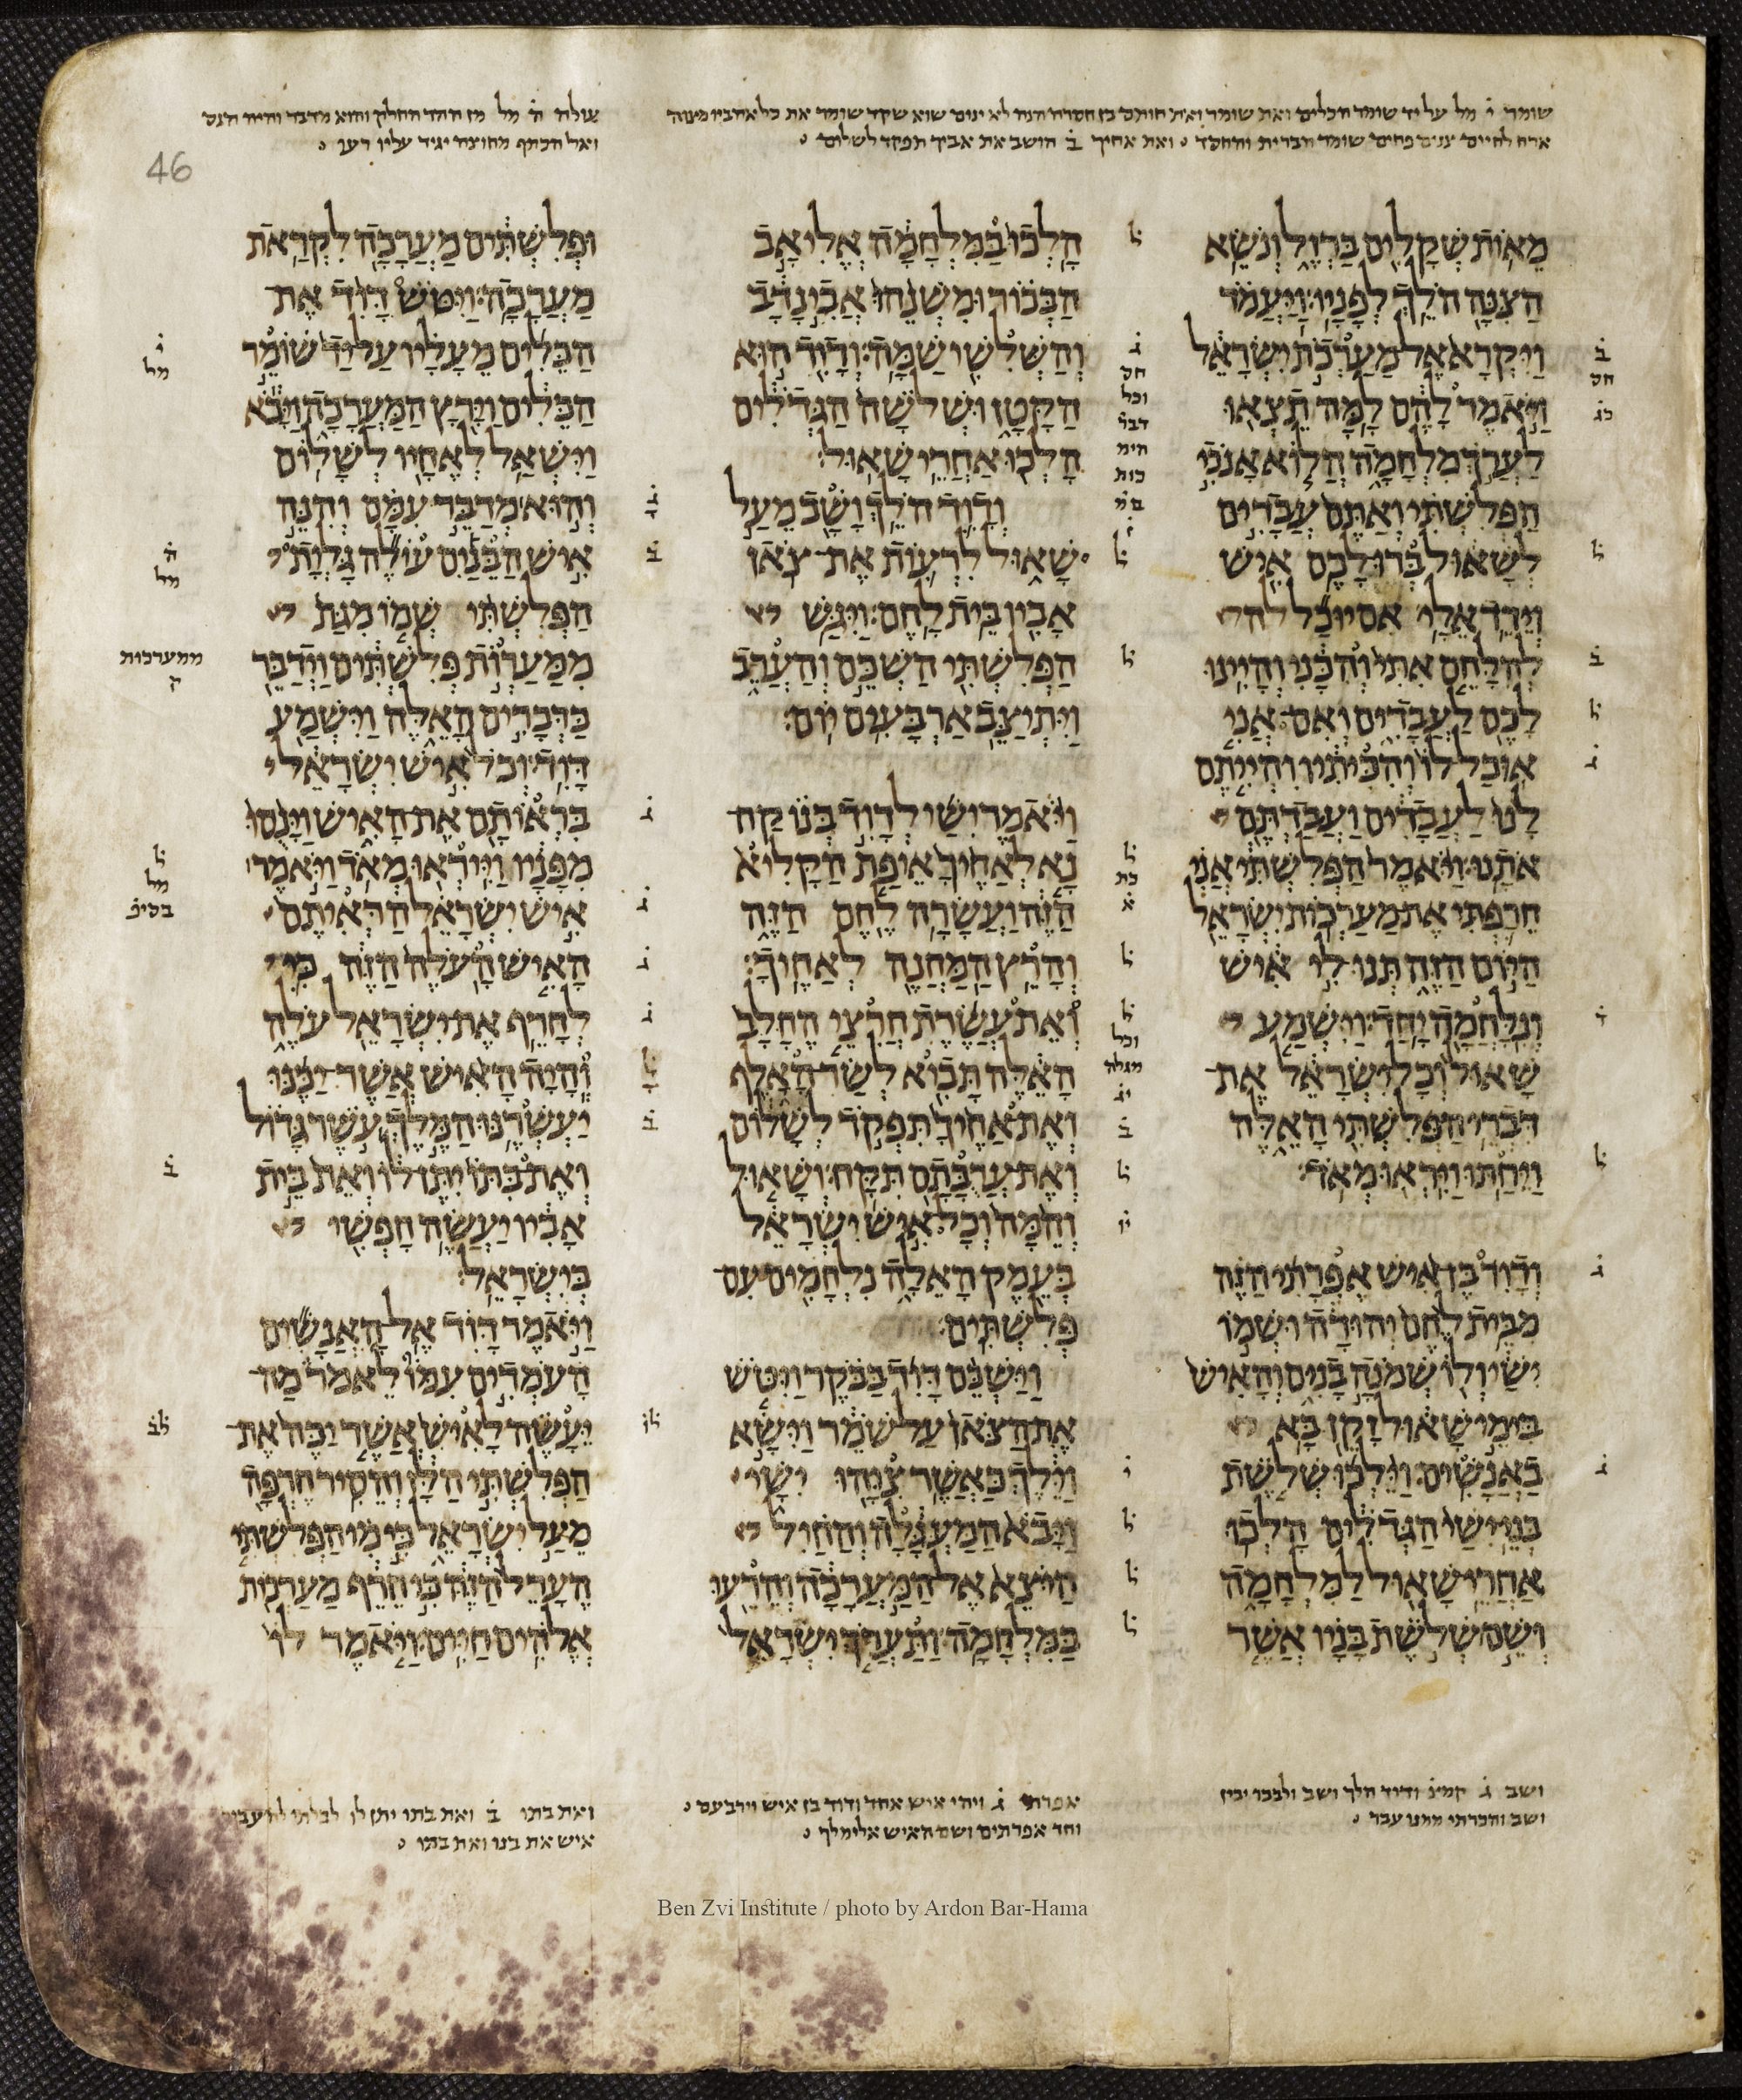 שומר י מל על יד שומר הכלים ואת שומר ואת חותם בן חסרה הנה לא ינום שוא שקד שומר את כל אהביו
ארח לחיים צנים פחים שומר הברית והחסד ואת אחיך ב הושב את אביך תפקד לשלום
עולה ה מל מן ההר החלק והוא מדבר והיה הנס
ואל הכתף מחוצה יגיד עליו רעו
46
מאות שקלים ברזל ונשא
הצנה הלך לפניו׃ ויעמד
ויקרא אל מערכת ישראל
ויאמר להם למה תצאו
לערך מלחמה הלוא אנכי
הפלשתי ואתם עבדים
לשאול ברו לכם איש
וירד אלי׃ אם יוכל
להלחם אתי והכני והיינו
לכם לעבדים ואם אני
אוכל לו והכיתיו והייתם
לנו לעבדים ועבדתם
אתנו׃ ויאמר הפלשתי אני
חרפתי את מערכות ישראל
היום הזה תנו לי איש
ונלחמה יחד׃ וישמע
שאול וכל ישראל את
דברי הפלשתי האלה
ויחתו ויראו מאד׃
ודוד בן איש אפרתי הזה
מבית לחם יהודה ושמו
ישי ולו שמנה בנים והאיש
בימי שאול זקן בא
באנשים׃ וילכו שלשת
בני ישי הגדלים הלכו
אחרי שאול למלחמה
ושם שלשת בניו אשר
הלכו במלחמה אליאב
הבכור ומשנהו אבינדב
והשלשי שמה׃ ודוד הוא
הקטן ושלשה הגדלים
הלכו אחרי שאול׃
ודוד הלך ושב מעל
שאול לרעות את צאן
אביו בית לחם׃ ויגש
הפלשתי השכם והערב
ויתיצב ארבעים יום׃
ויאמר ישי לדוד בנו קח
נא לאחיך איפת הקליא
הזה ועשרה לחם הזה
והרץ המחנה לאחיך׃
ואת עשרת חרצי החלב
האלה תביא לשר האלף
ואת אחיך תפקד לשלום
ואת ערבתם תקח׃ ושאול
והמה וכל איש ישראל
בעמק האלה נלחמים עם
פלשתים׃
וישכם דוד בבקר ויטש
את הצאן על שמר וישא
וילך כאשר צוהו ישי
ויבא המעגלה והחיל
היצא אל המערכה והרעו
במלחמה׃ ותערך ישראל
ופלשתים מערכה לקראת
מערכה׃ ויטש דוד את
הכלים מעליו על יד שומר
הכלים וירץ המערכה ויבא
וישאל לאחיו לשלום׃
והוא מדבר עמם והנה
איש הבנים עולה גלית
הפלשתי שמו מגת
ממערות פלשתים וידבר
כדברים האלה וישמע
דוד׃ וכל איש ישראל
בראותם את האיש וינסו
מפניו וייראו מאד׃ ויאמר
איש ישראל הראיתם
האיש העלה הזה כי
לחרף את ישראל עלה
והיה האיש אשר יכנו
יעשרנו המלך עשר גדול
ואת בתו יתן לו ואת בית
אביו יעשה חפשי
בישראל׃
ויאמר דוד אל האנשים
העמדים עמו לאמר מה
יעשה לאיש אשר יכה את
הפלשתי הלז והסיר חרפה
מעל ישראל כי מי הפלשתי
הערל הזה כי חרף מערכות
אלהים חיים׃ ויאמר לו
ממערכות
ק
ושב ג קמיצ ודוד הלך ושב ולבבו יבין
ושב והכרתי ממנו עבר
אפרתי ג ויהי איש אחד ודוד בן איש וירבעם
וחד אפרתים ושם האיש אלימלך
ואת בתו ב ואת בתו יתן לו לבלתי להעביר
איש את בנו ואת בתו
Ben Zvi Institute / photo by Ardon Bar-Hama